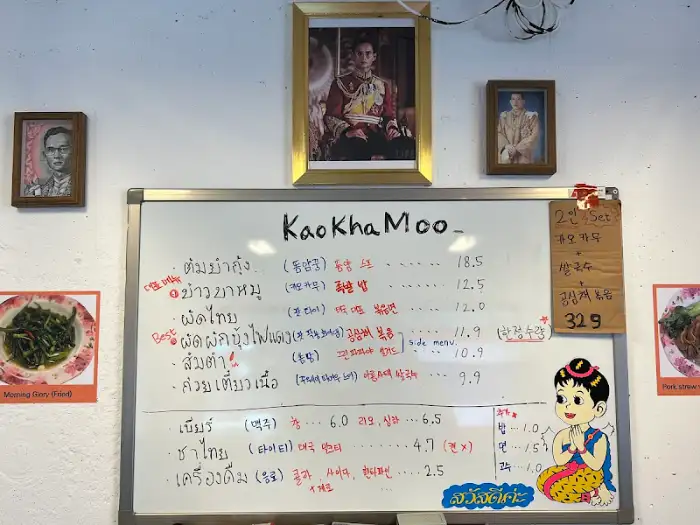 KaoKhaMoo
ต้มยำกุ้ง (똠얌꿍) 똠얌 스프 ...... 18.5
대표메뉴 ① ข้าวขาหมู (카오카무) 족발 밥 ...... 12.5
ผัดไทย (팟타이) 볶음면 ...... 12.0
Best ผัดผักบุ้งไฟแดง 공심채 볶음 ...... 11.9 (한정수량)
side menu.
ส้มตำ (쏨땀) 그린 파파야 샐러드 10.9
ก๋วยเตี๋ยวเนื้อ 쌀국수 ...... 9.9
เบียร์ (맥주) 창 ... 6.0 리오, 싱하 ... 6.5
ชาไทย (타이티) 태국 밀크티 ...... 4.7 (컵 X)
เครื่องดื่ม (음료) 콜라, 사이다, 환타파인 .... 2.5
추가
밥 ... 1.0
면 ... 1.5
고수 ... 1.0
สวัสดีค่ะ
2인 Set
카오카무
+
쌀국수
+
공심채 볶음
329
Morning Glory (Fried)
Pork strew